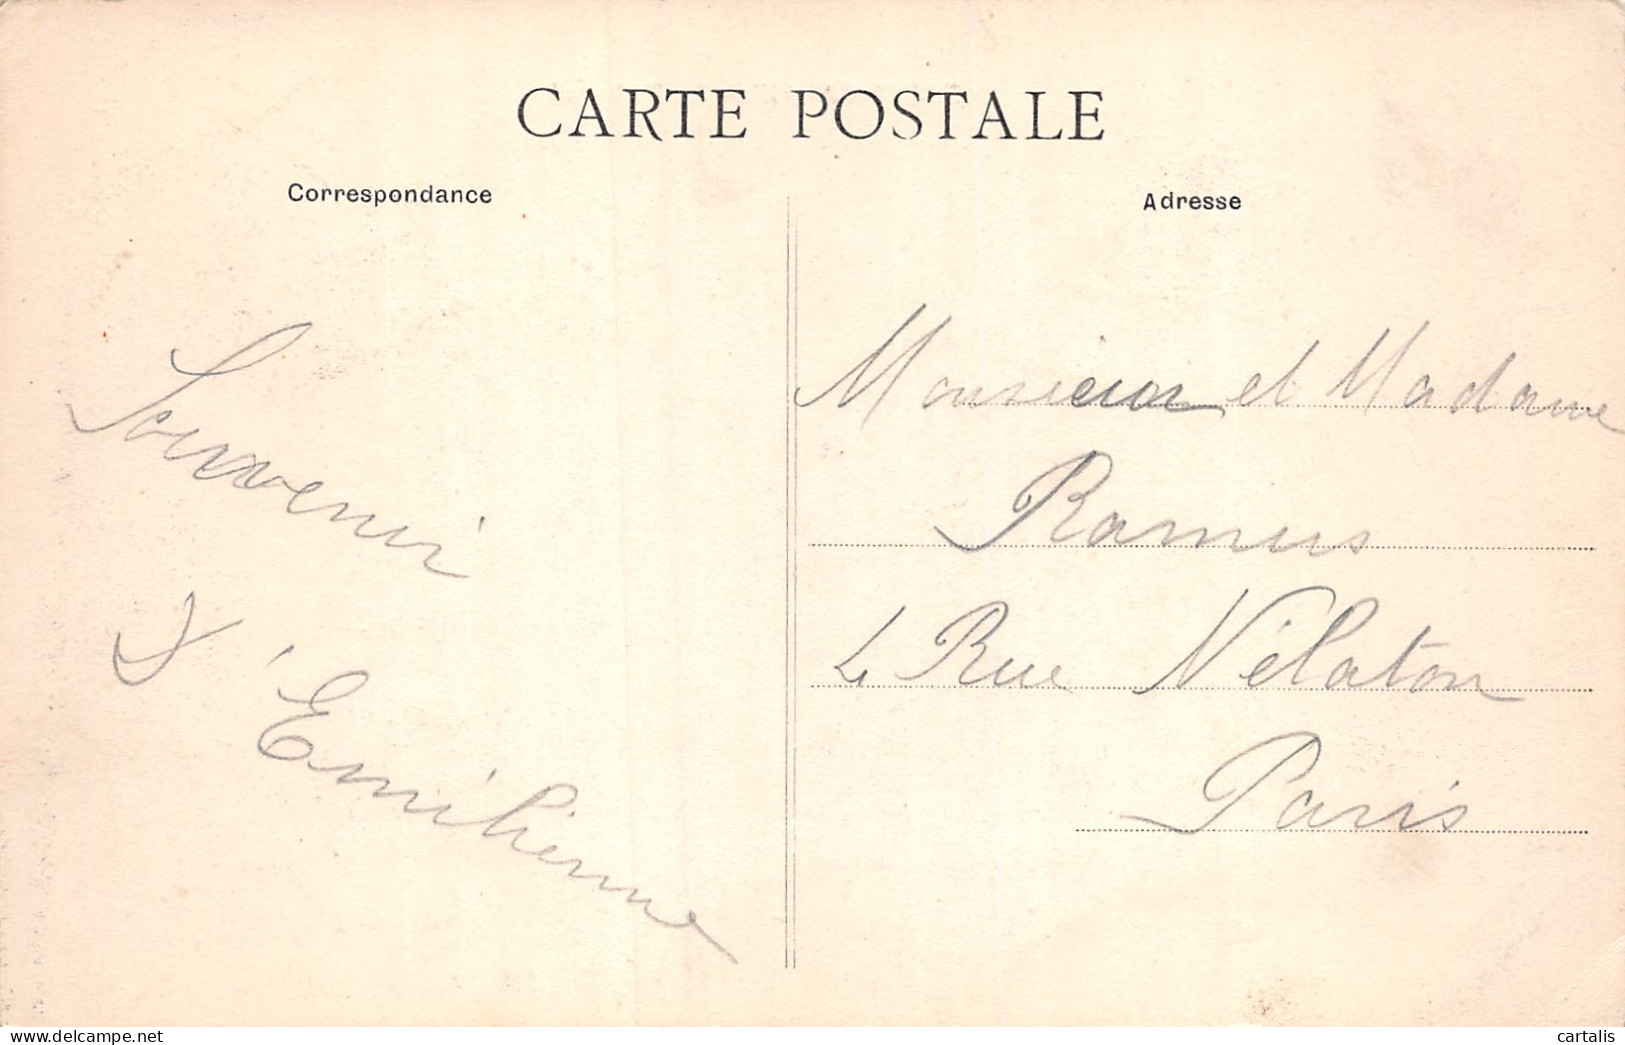 CARTE POSTALE
Correspondance
Souvenir
d'Emilienne
Adresse
Monsieur et Madame
Ramus
4 Rue Nélaton
Paris
www.delcampe.net
cartalis